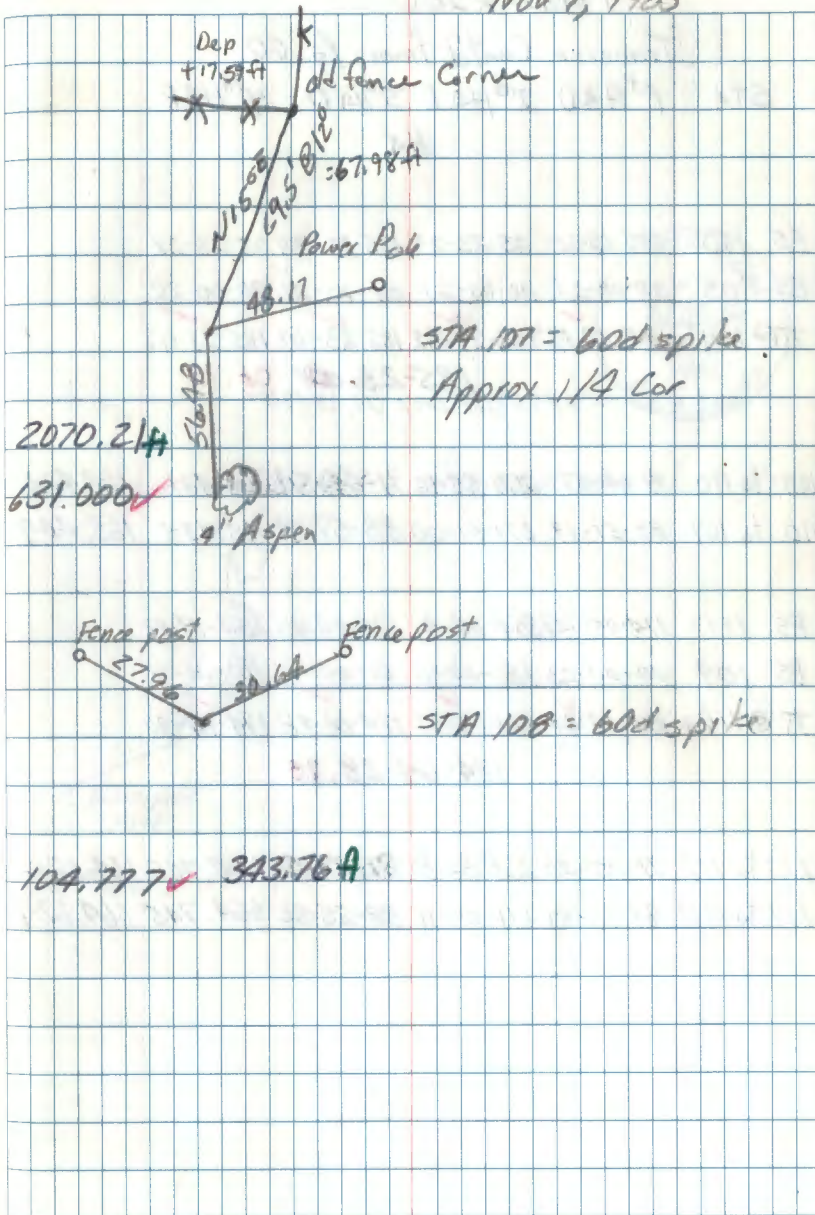 Nov 1,
Dep
+17.59 ft
old fence Corner
69.5' @ 12°
=67.98 ft
Power Pole
48.17
STA 107 = 60d spike
Approx 1/4 Cor
56.43
2070.21 ft
631.000 ✓
4" Aspen
Fence post
Fence post
27.96
30.64
STA 108 = 60d spike
104.777 ✓ 343.76 ft